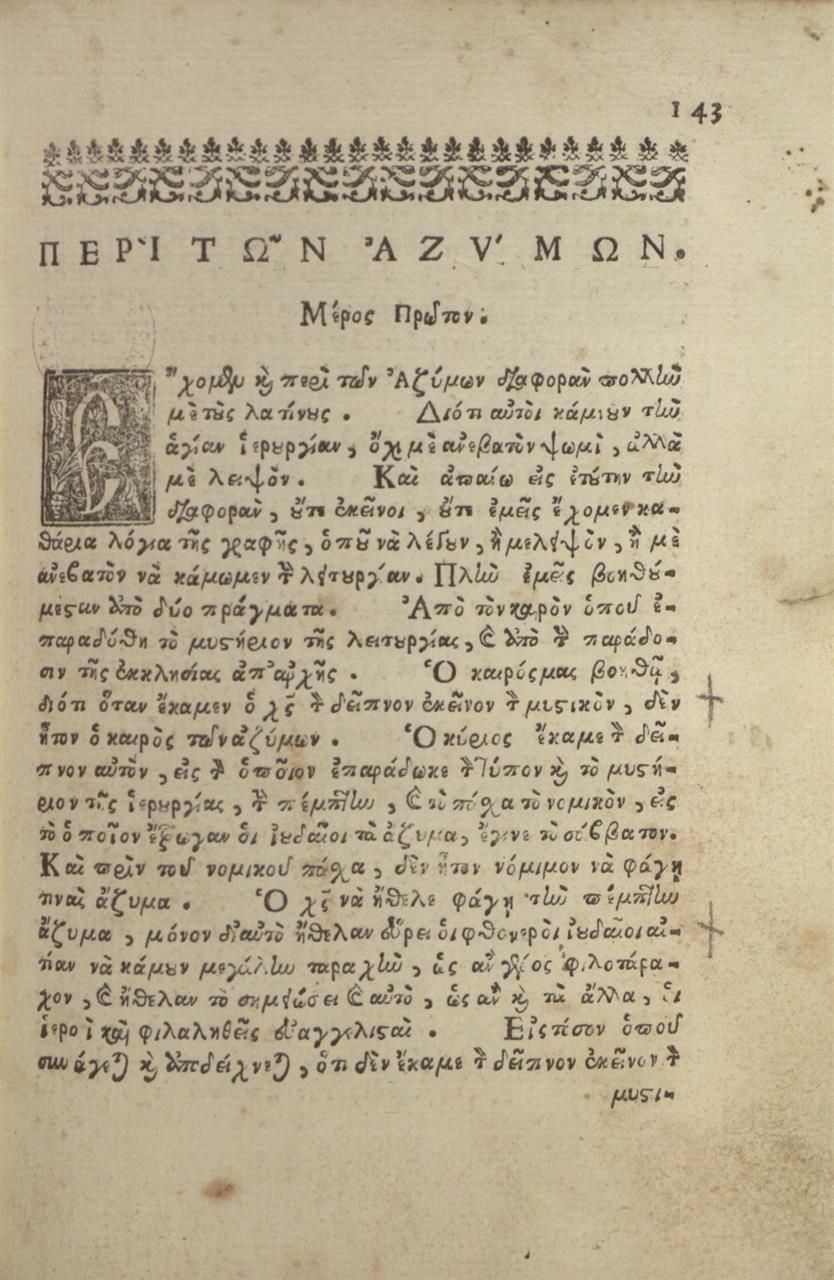 143
ΠΕΡῚ ΤΩ͂Ν ἈΖΎΜΩΝ.
Μέρος Πρῶτον.
Ἔχομεν καὶ περὶ τῶν Ἀζύμων διαφορὰν πολλὴν
μὲ τοὺς λατίνους. Διότι αὐτοὶ κάμνουν τὴν
ἁγίαν ἱερουργίαν, ὄχι μὲ ἀνεβατὸν ψωμὶ, ἀλλὰ
μὲ λειψὸν. Καὶ ἀπαίω εἰς ἐτούτην τὴν
διαφορὰν, οὔτε ἐκεῖνοι, οὔτε ἐμεῖς ἔχομεν κα-
θάρια λόγια τῆς γραφῆς, ὁποῦ νὰ λέγουν, ἢ μὲ λειψὸν, ἢ μὲ
ἀνεβατὸν νὰ κάμωμεν τὴν λειτουργίαν. Πλὴν ἐμεῖς βοηθού-
μεσταν ἀπὸ δύο πράγματα. Ἀπὸ τὸν καιρὸν ὁποῦ ἐ-
παραδόθη τὸ μυστήριον τῆς λειτουργίας, καὶ ἀπὸ τὴν παράδο-
σιν τῆς ἐκκλησίας ἀπ' ἀρχῆς. Ὁ καιρός μας βοηθᾷ,
διότι ὅταν ἔκαμεν ὁ χς τὸν δεῖπνον ἐκεῖνον τὸν μυστικὸν, δὲν
ἦτον ὁ καιρὸς τῶν ἀζύμων. Ὁ κύριος ἔκαμε τὸν δεῖ-
πνον αὐτὸν, εἰς τὸν ὁποῖον ἐπαράδωκε τὸν τύπον καὶ τὸ μυστή-
ριον τῆς ἱερουργίας, τὴν πέμπτην, καὶ τὸ πάσχα τὸ νομικὸν, εἰς
τὸ ὁποῖον ἔτρωγαν οἱ ἰουδαῖοι τὰ ἄζυμα, ἔγινε τὸ σάββατον.
Καὶ πρὶν τοῦ νομικοῦ πάσχα, δὲν ἦτον νόμιμον νὰ φάγῃ
τινας ἄζυμα. Ὁ χς νὰ ἤθελε φάγῃ τὴν πέμπτην
ἄζυμα, μόνον δι' αὐτὸ ἤθελαν εὕρει οἱ φθονεροὶ ἰουδαῖοι αἰ-
τίαν νὰ κάμουν μεγάλην ταραχὴν, ὡς ἂν γένος φιλοτάρα-
χον, καὶ ἤθελαν τὸ σημειώσει καὶ αὐτὸ, ὡς ἂν καὶ τὰ ἄλλα, οἱ
ἱεροὶ καὶ φιλαληθεῖς εὐαγγελισταὶ. Εἰς τόσον ὁποῦ
συνάγεται καὶ ἀποδείχνεται, ὅτι δὲν ἔκαμε τὸν δεῖπνον ἐκεῖνον τὸν
μυστι-